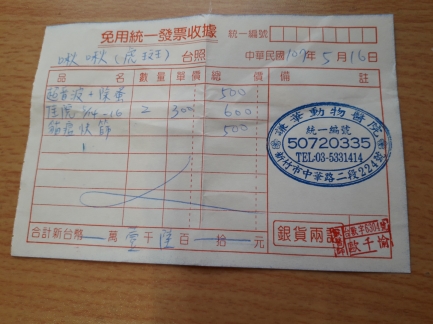 免用統一發票收據 統一編號
啾啾(虎斑) 台照 中華民國109年5月16日
品名 數量 單價 總價 備註
超音波+保養 500
住院 5/14-16 2 300 600
貓瘟快篩 500
謙華動物醫院
統一編號
50720335
TEL:03-5331414
新竹市中華路二段224號
合計新台幣 萬壹千陸百 拾 元
銀貨兩訖